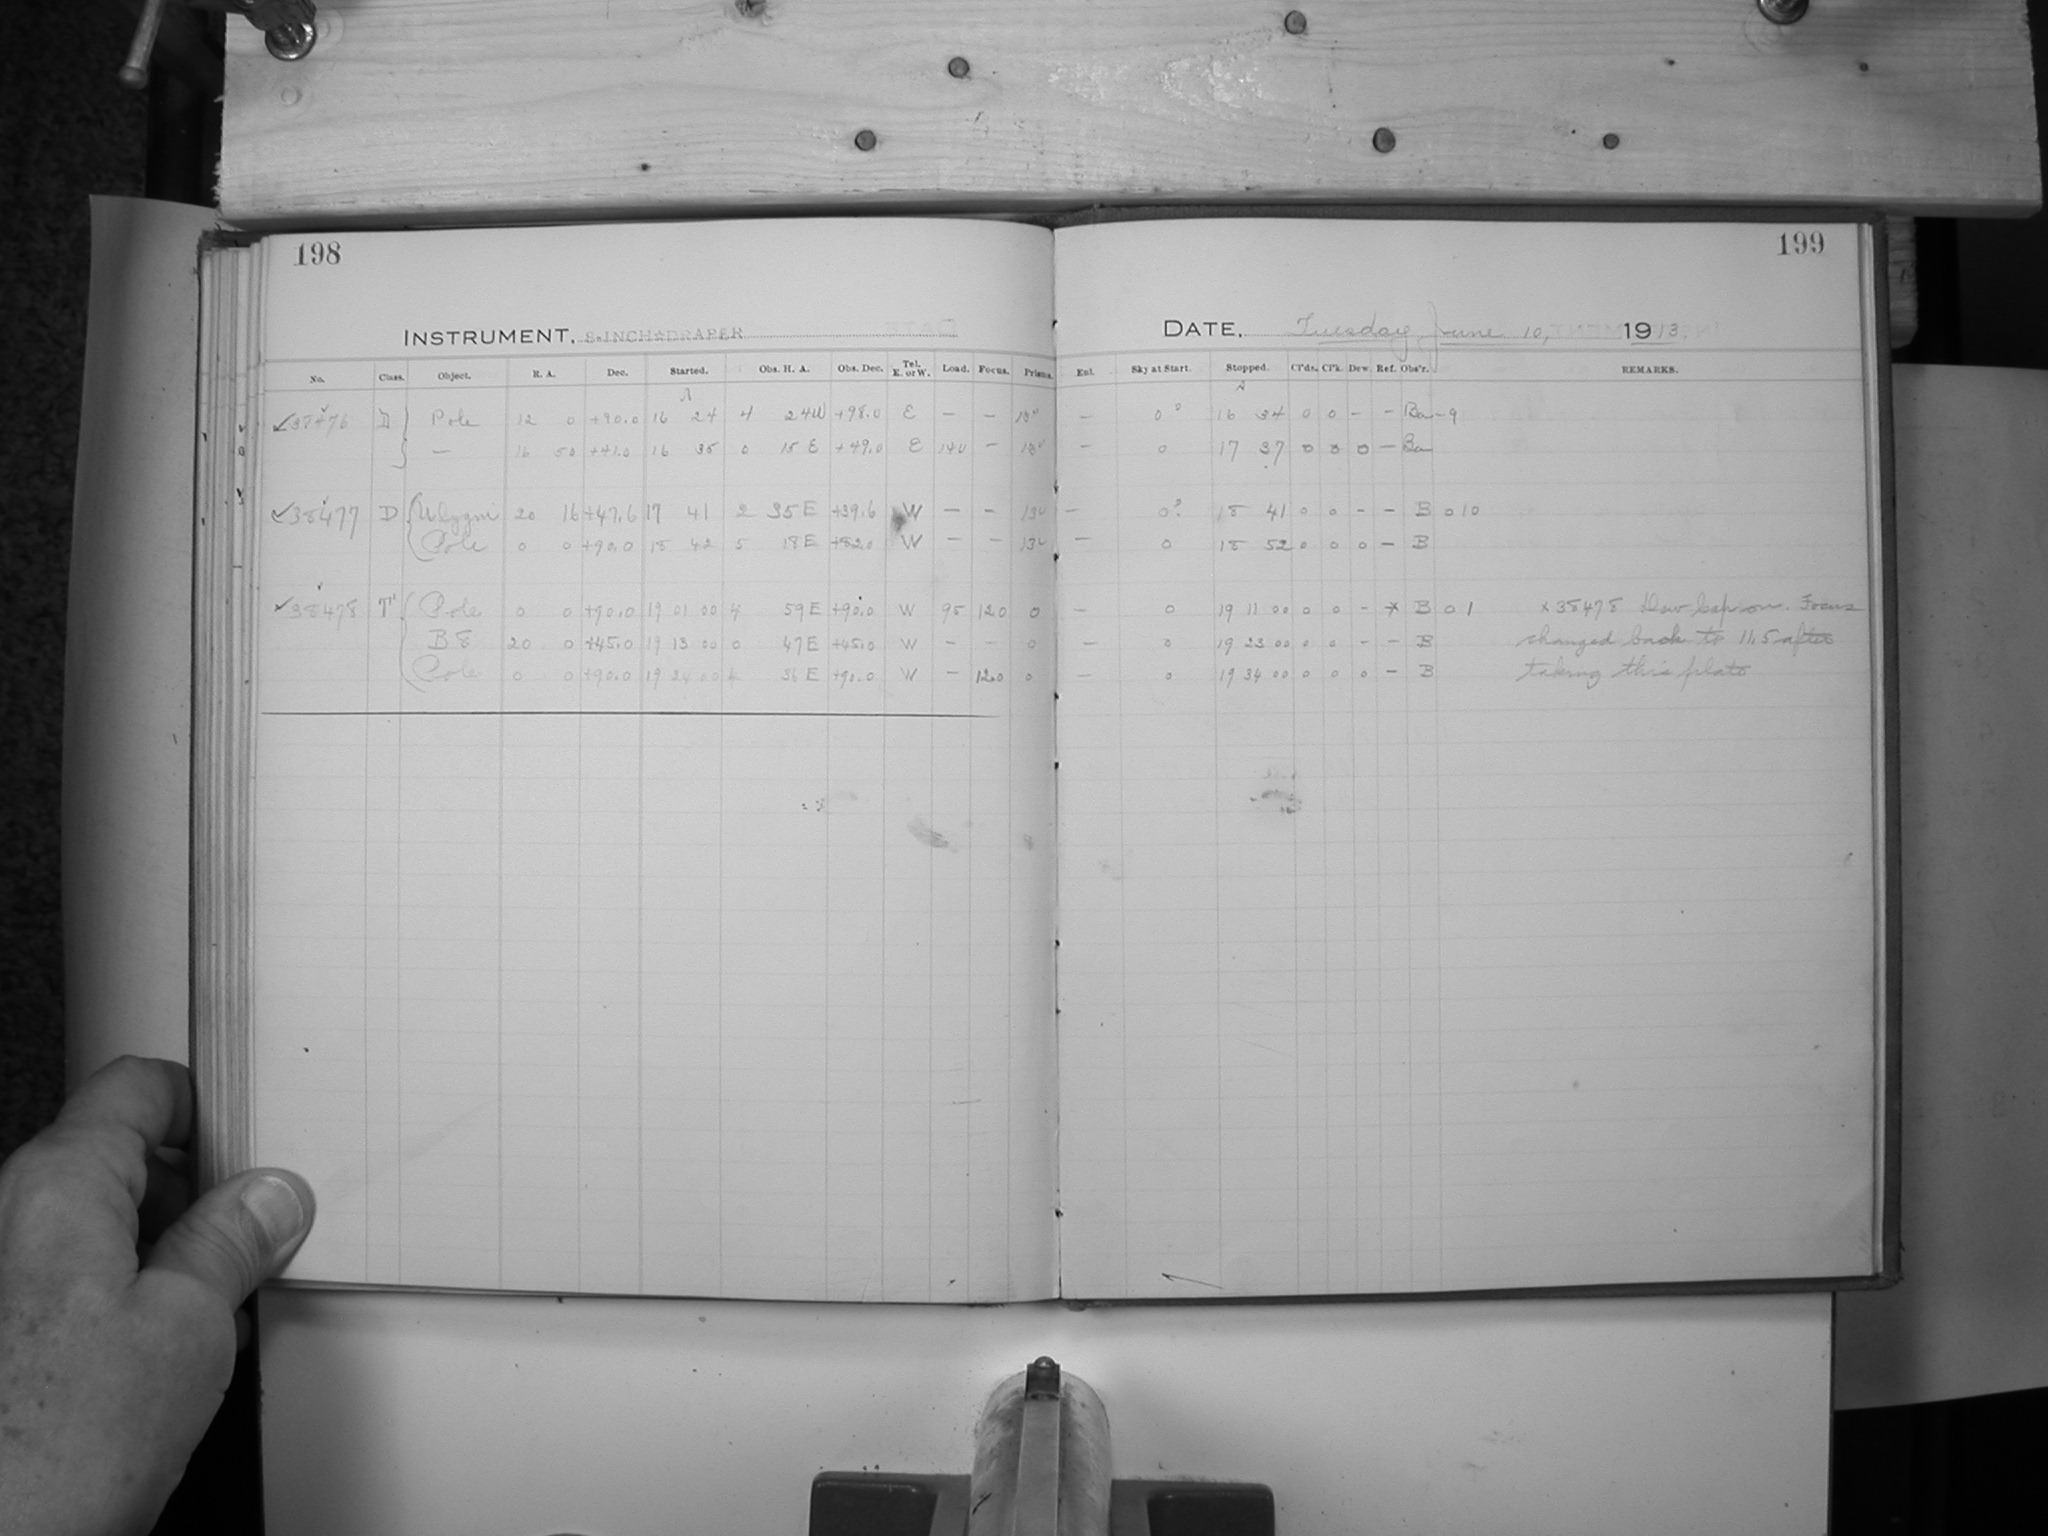 198
199
INSTRUMENT, 8-INCH DRAPER
DATE, Tuesday June 10, 1913.
No. Class. Object. R. A. Dec. Started. Obs. H. A. Obs. Dec. Tel. E. or W. Load. Focus. Prisms. Enl. Sky at Start. Stopped. Cl'ds. Cl'k. Dew. Ref. Obs'r. REMARKS.
D Pole 12 0 +90.0 16 24 4 24W +98.0 E — — — 0? 16 34 0 0 - - Ba-9
— 16 50 +41.0 16 35 0 15 E +49.0 E 140 — — 0 17 37 0 0 0 — Ba
✓38477 D 20 16 +47.6 17 41 2 35 E +39.6 W — — — 0? 18 41 0 0 - - B 0 10
Pole 0 0 +90.0 18 42 5 18 E +82.0 W — — — 0 18 52 0 0 0 — B
✓38478 T' Pole 0 0 +90.0 19 01 00 4 59 E +90.0 W 95 12.0 0 — 0 19 11 00 0 0 - * B 0 1 x 38478 Dew cap on. Focus
B 8 20 0 +45.0 19 13 00 0 47 E +45.0 W — — 0 — 0 19 23 00 0 0 - - B changed back to 11.5 after
Pole 0 0 +90.0 19 24 00 4 36 E +90.0 W — 12.0 0 — 0 19 34 00 0 0 0 — B taking this plate